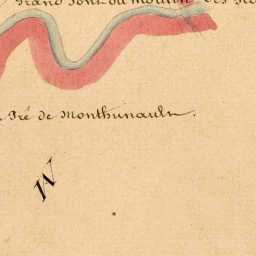 Grand Pont du moulin des
Pré de Monthunault.
M